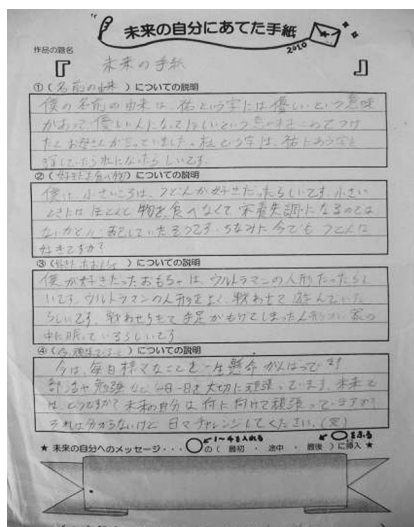 未来の自分にあてた手紙
2010
作品の題名
『 未来の手紙 』
①(名前の由来)についての説明
僕の名前の由来は、祐という字には優しいという意味
があって、優しい人になってほしいという
たとお母さんが言っていました。という字は、祐にあう字を
探していたらこれになったらしいです。
②(好きな食べ物)についての説明
僕は、小さいころは、うどんが好きだったらしいです。小さい
ときはほとんど物を食べなくて栄養失調になるのでは
ないかと心配していたそうです。ちなみに今でもうどんは
好きですか?
③()についての説明
僕が好きだったおもちゃは、ウルトラマンの人形だったらし
いです。ウルトラマンの人形をよく、戦わせて遊んでいた
らしいです。戦わせすぎて手足がもげてしまった人形が、家の
中に眠っているらしいです
④()についての説明
今は、毎日様々なことを一生懸命がんばっています
部活や勉強など一日一日を大切に頑張っています。未来で
は、どうですか?未来の自分は何に向けて頑張っていますか?
それは分からないけど日々チャレンジしてください。(完)
1~4を入れる
○をする
★ 未来の自分へのメッセージ・・・○の(最初・途中・最後)に挿入 ★